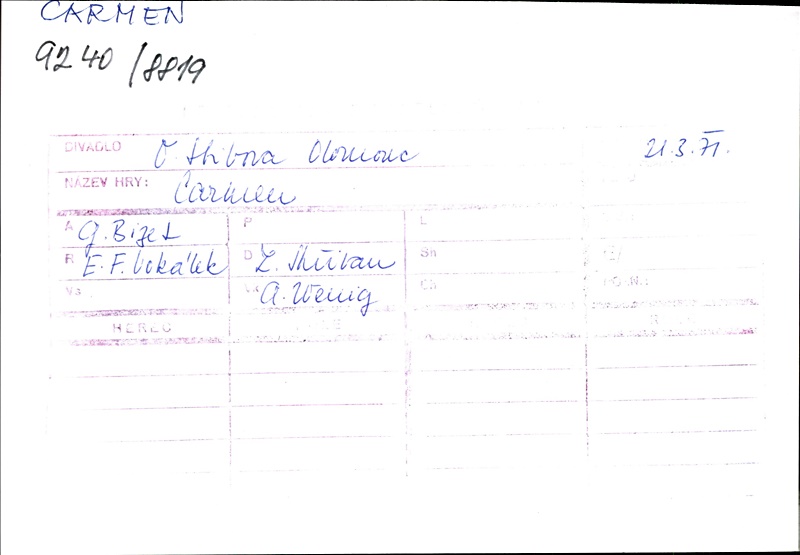 CARMEN
9240/8819
DIVADLO O. Stibora Olomouc 21.3.71.
NÁZEV HRY: Carmen
A G. Bizet P L
R E. F. Vokálek D Z. Sn
Vs A. Wenig Ch
HEREC